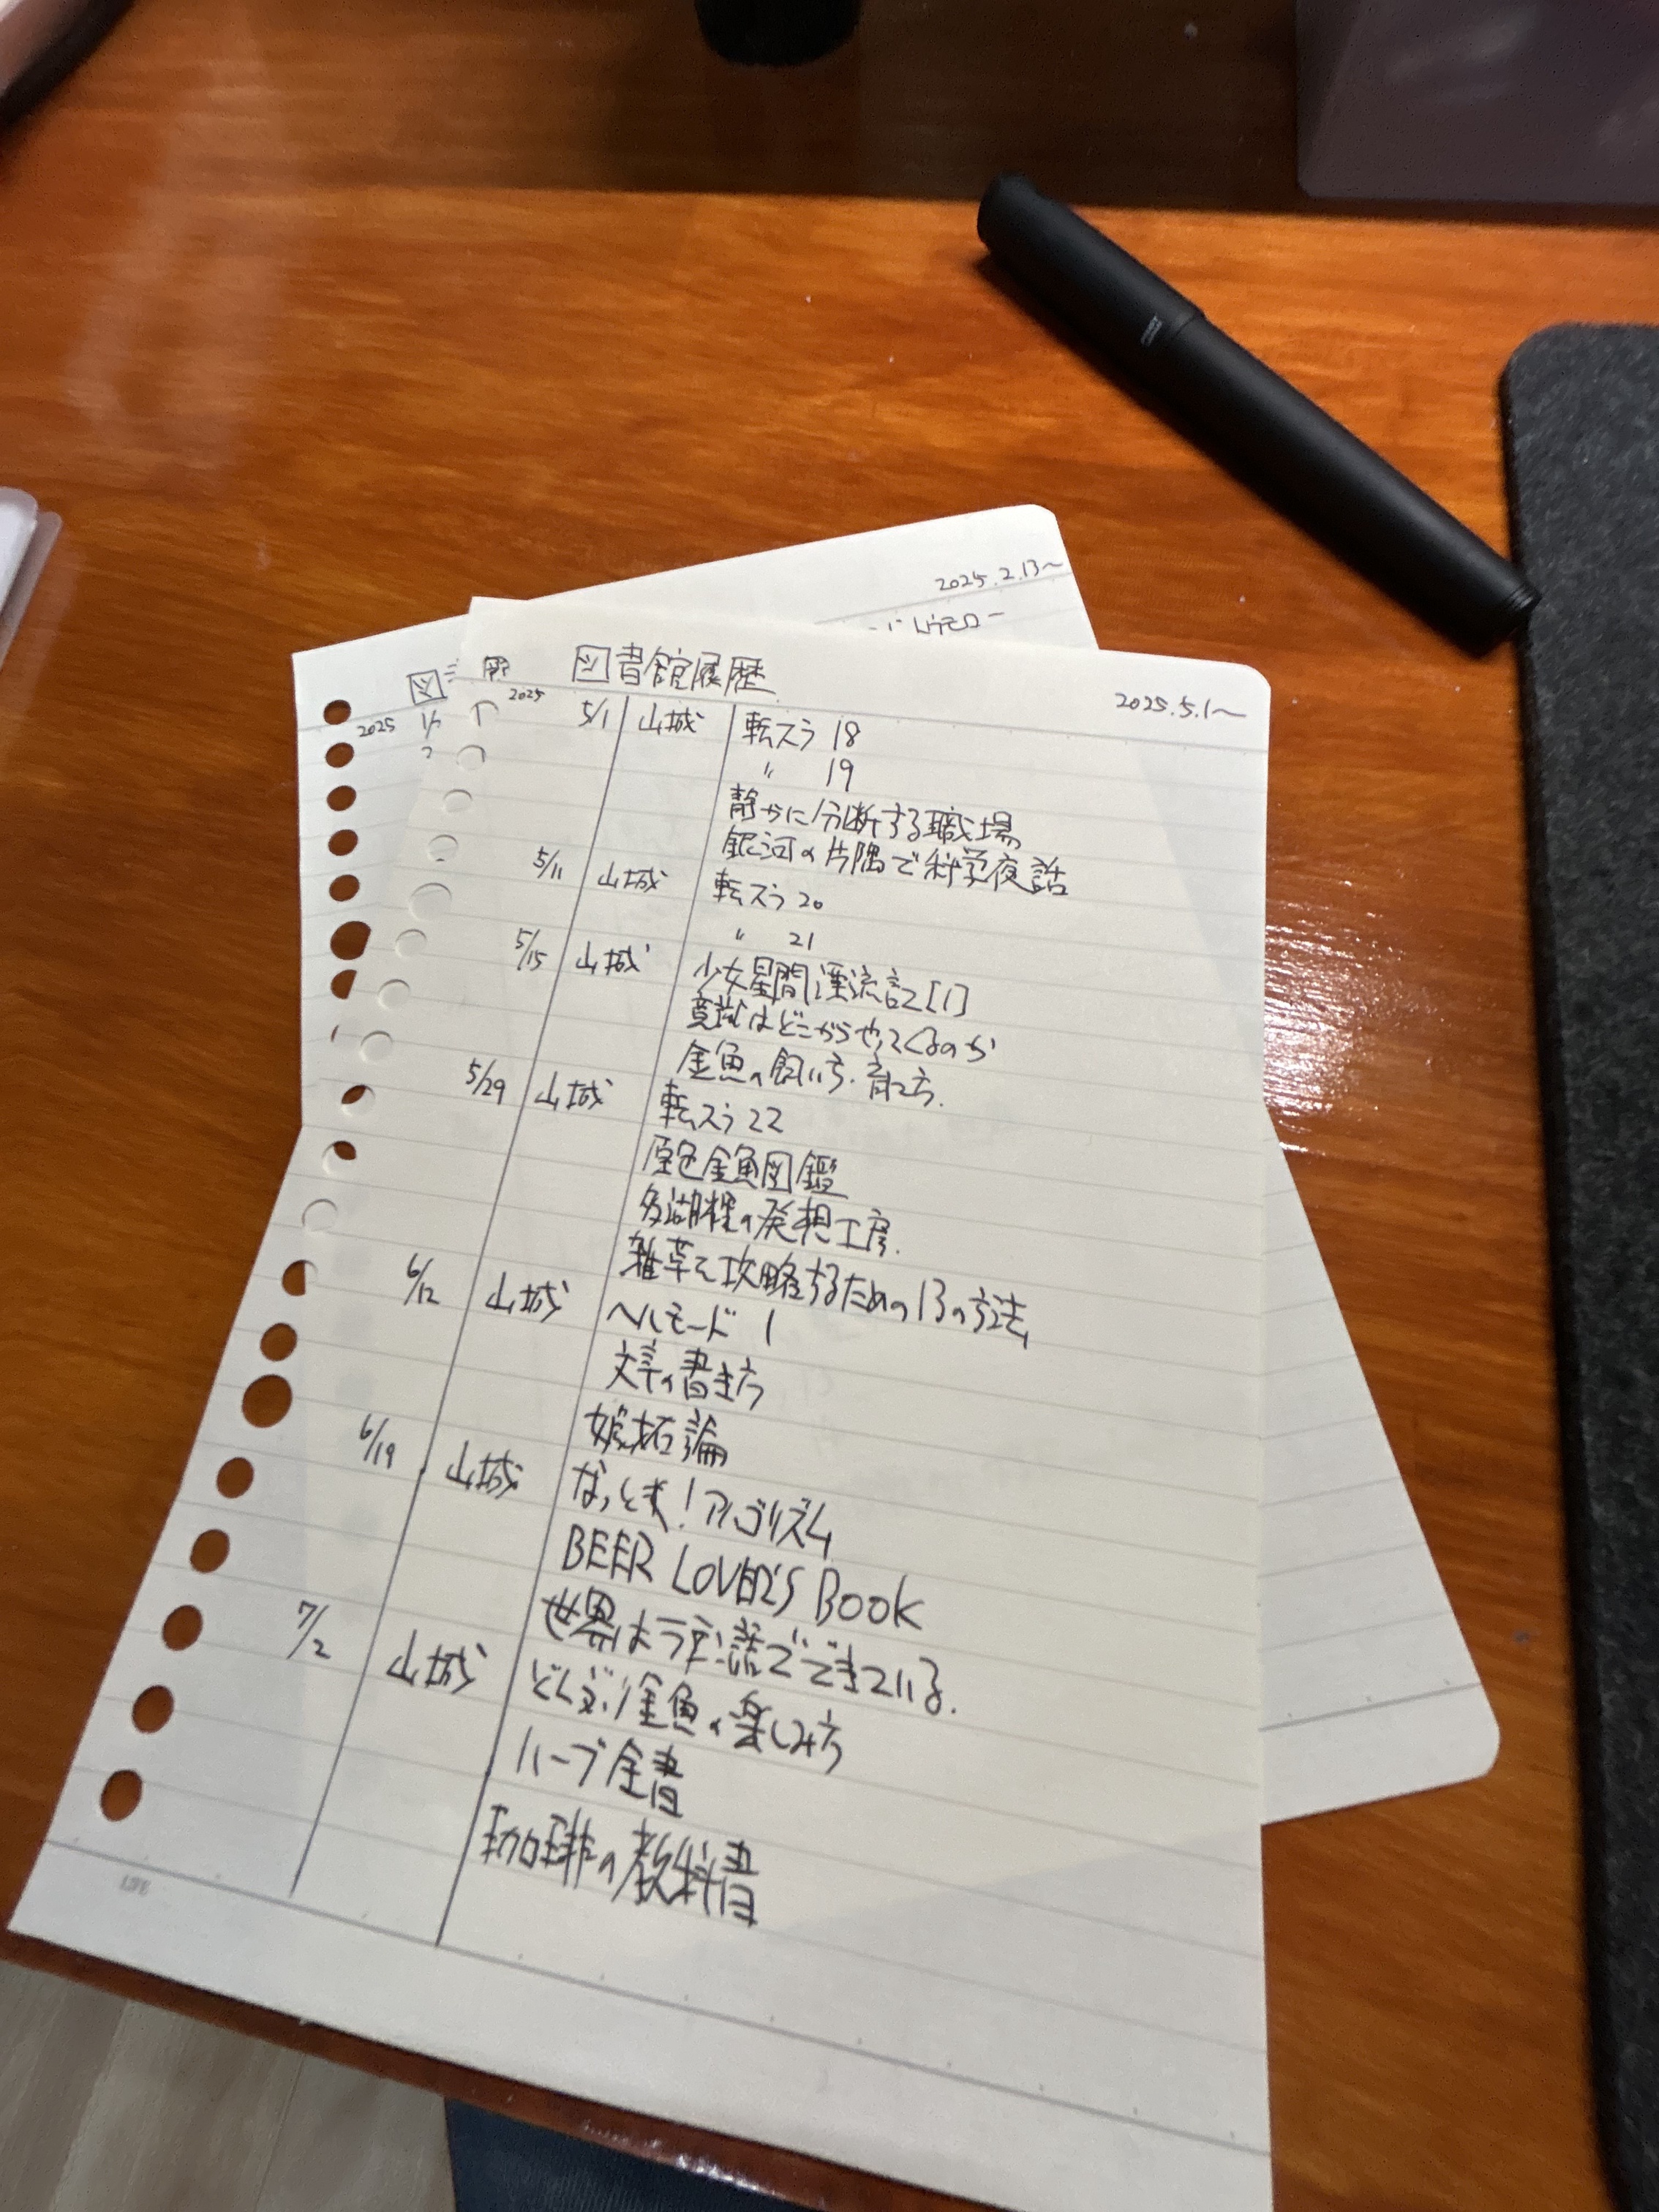 2025.2.13~
図
2025
図書館履歴
2025.5.1~
2025
5/1 山城 転スラ 18
〃 19
静かに分断する職場
銀河の片隅で科学夜話
5/11 山城 転スラ 20
〃 21
5/15 山城 少女星間漂流記[1]
意識はどこからやってくるのか
金魚の飼い方・育て方.
5/29 山城 転スラ 22
原色金魚図鑑
多湖輝の発想工房.
雑草を攻略するための13の方法
6/12 山城 ヘルモード 1
文章の書き方
嫉妬論
6/19 山城 なっとく!アルゴリズム
BEER LOVER'S BOOK
世界はラテン語でできている.
7/2 山城 どんぶり金魚の楽しみ方
ハーブ全書
珈琲の教科書
LIFE